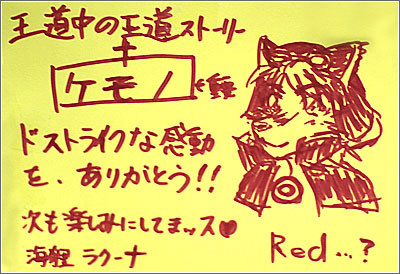 王道中の王道ストーリー
+
ケモノ ←重要
ドストライクな感動
を、ありがとう!!
次も楽しみにしてまッス♥
ラクーナ
Red...?